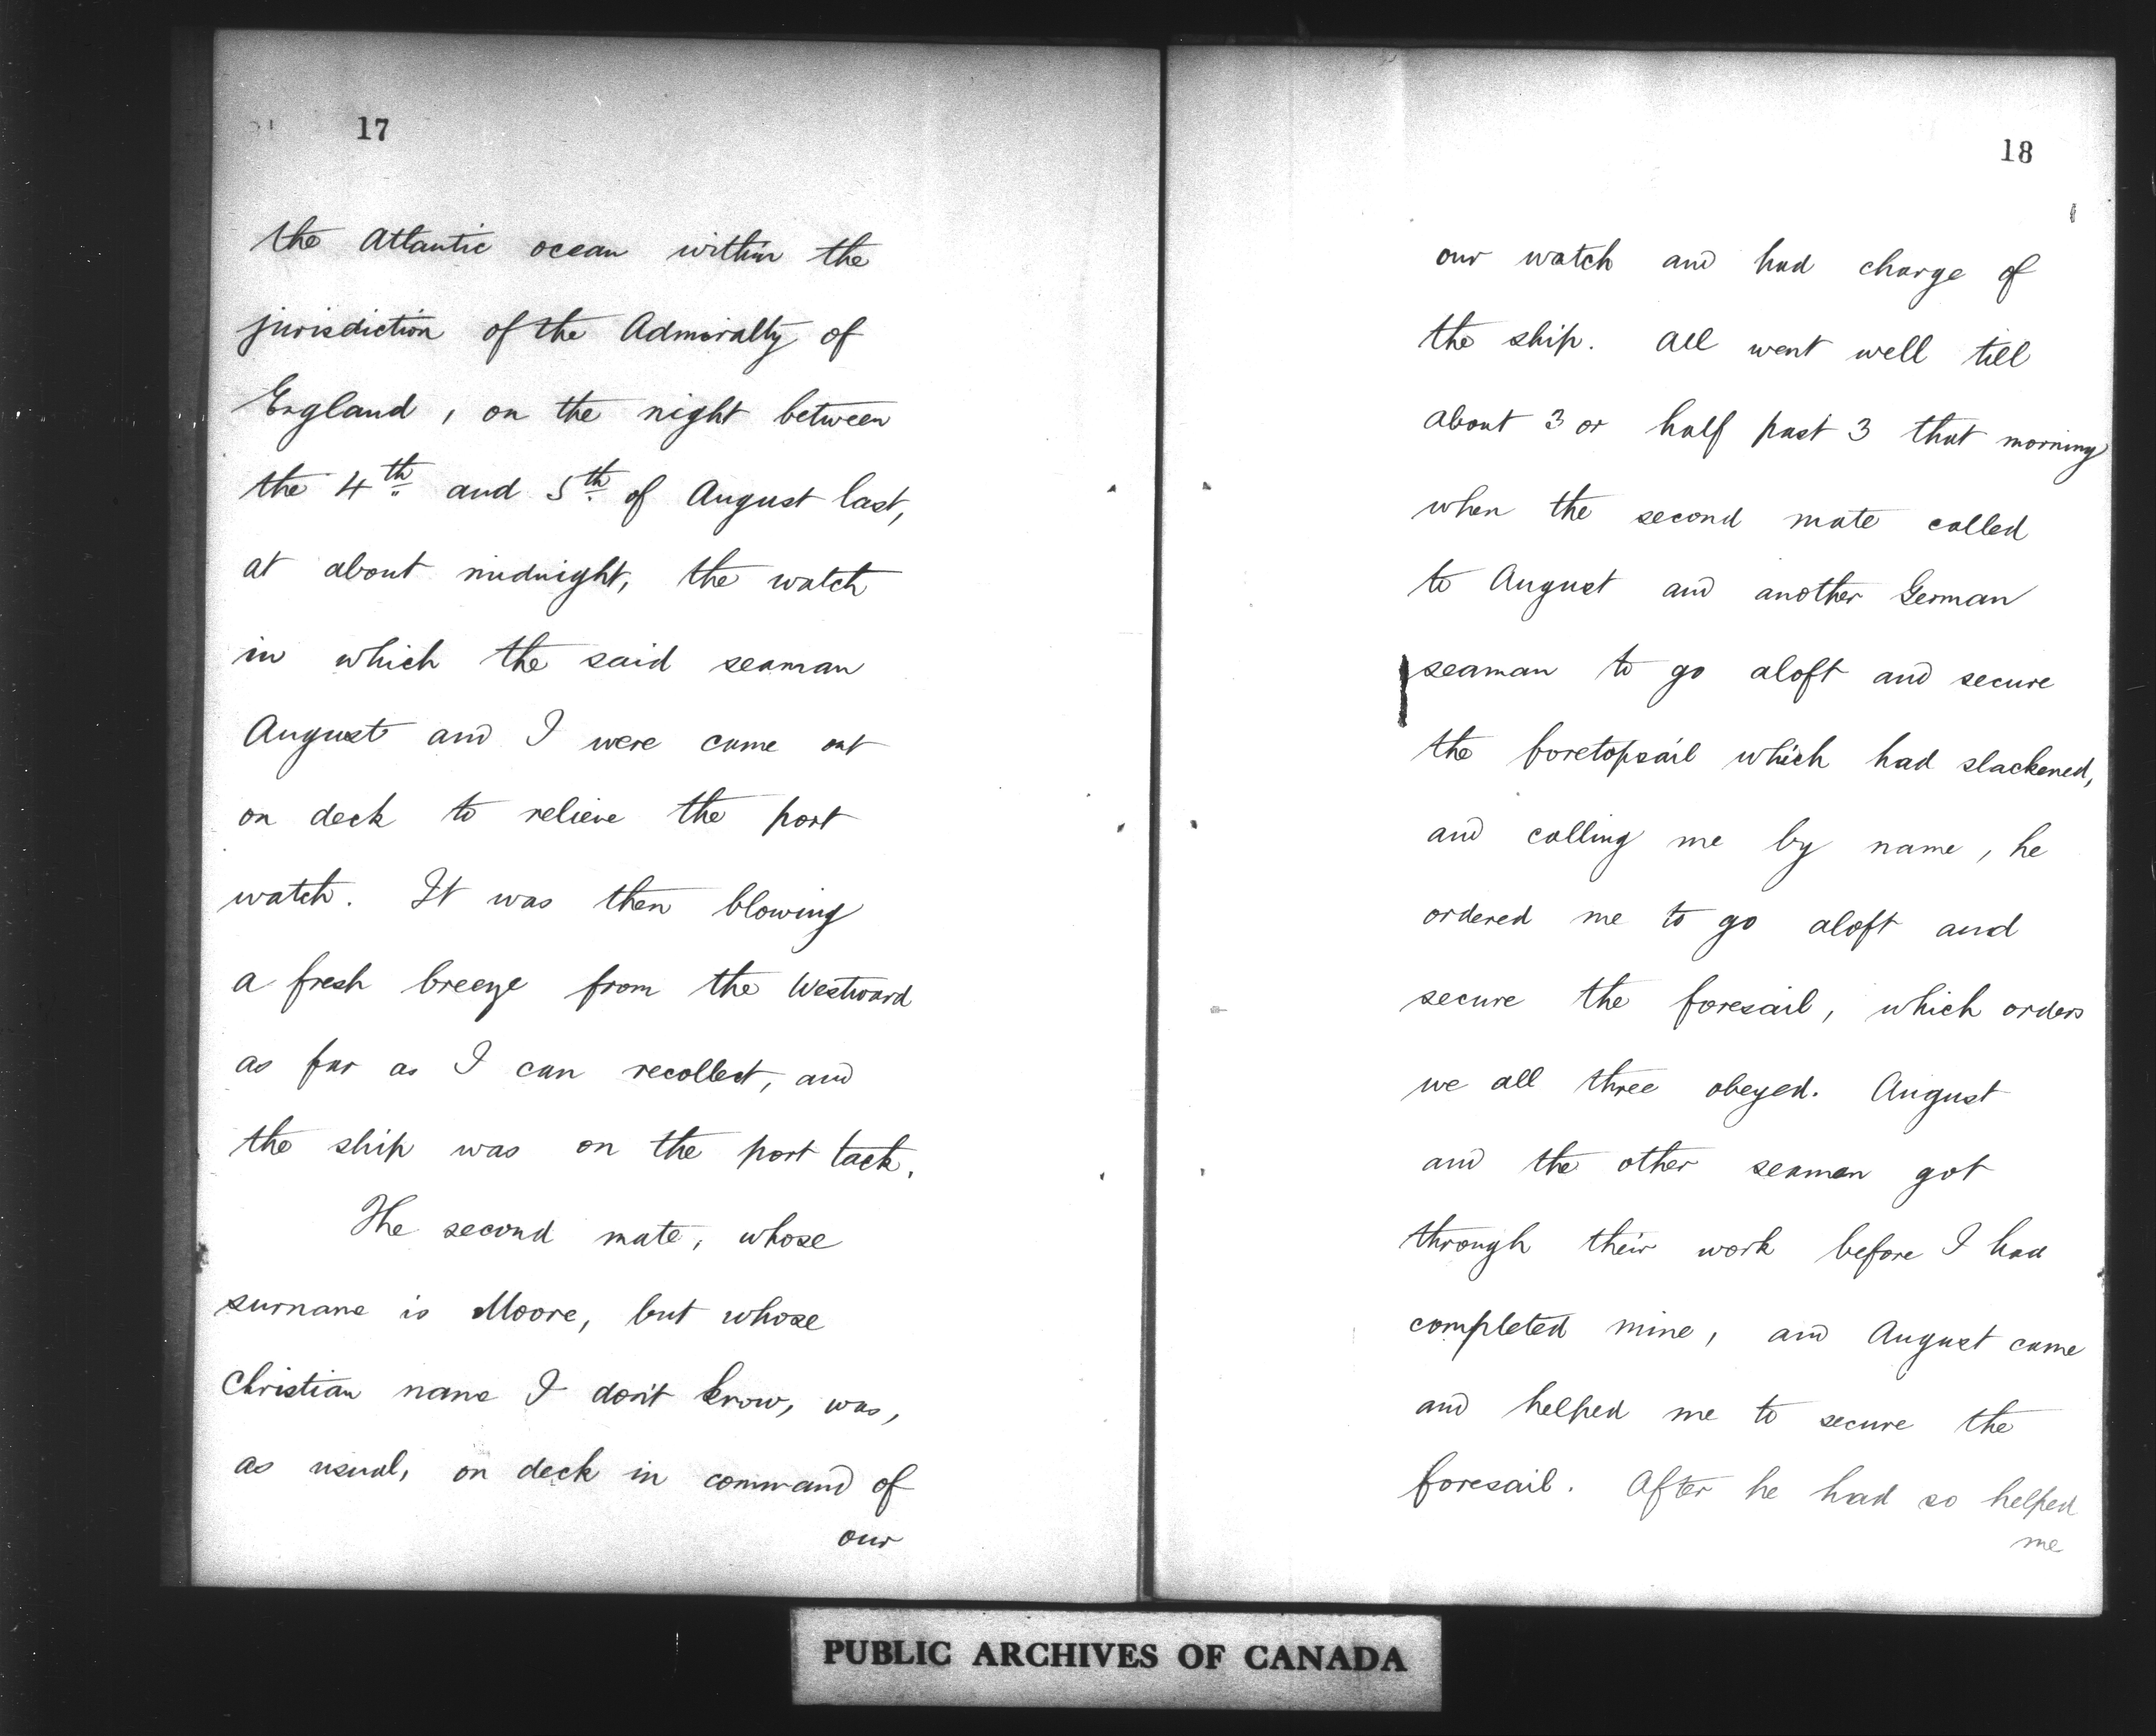 17
the Atlantic ocean within the
jurisdiction of the Admiralty of
England, on the night between
the 4th and 5th of August last,
at about midnight, the watch
in which the said seaman
August and I were came out
on deck to relieve the port
watch. It was then blowing
a fresh breeze from the Westward
as far as I can recollect, and
the ship was on the port tack.
The second mate, whose
surname is Moore, but whose
Christian name I don't know, was,
as usual, on deck in command of
our
18
our watch and had charge of
the ship. All went well till
about 3 or half past 3 that morning
when the second mate called
to August and another German
seaman to go aloft and secure
the foretopsail which had slackened,
and calling me by name, he
ordered me to go aloft and
secure the foresail, which orders
we all three obeyed. August
and the other seaman got
through their work before I had
completed mine, and August came
and helped me to secure the
foresail. After he had so helped
me
PUBLIC ARCHIVES OF CANADA